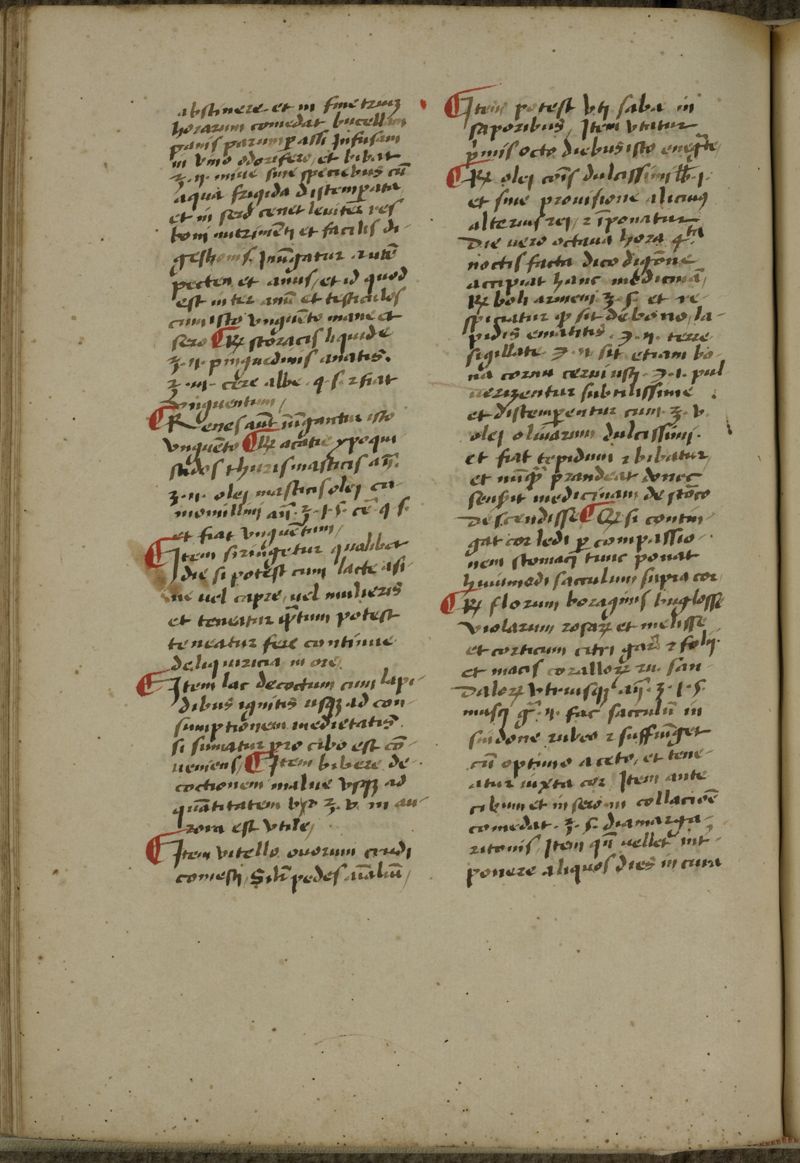 abstinere. et in fine trium
horarum comedat bucellam
panis parum assi infusam
in vino odorifero, et bibat
ʒ. ij. mive sine speciebus cū
aqua frigida distemperata
et in sero cenet leviter res
boni nutrimēti et facilis di-
gestionis. Inūgatur autē
pecten et anus, et id quod
est inter anū et testiculos
cum isto vnguēto mane et
sero ℞ storacis liquide
ʒ. ij. pinguedinis anatis.
ʒ. iij. cere albe. q. s. ⁊ fiat
vnguentum,
Renes aūt inūgantur isto
vnguēto ℞ acatie ypoqui
stidos thuris masticis aā.
ʒ. ij. olei masticis olei ca-
momillini aā. ʒ. j. s. cē q. s.
et fiat vnguētum,
Item siringetur qualibet
die si potest cum lacte asi
ne uel capre, uel mulieris
et teneatur q̄tum potest
teneatur fere continue
de liquiricia in ore.
Item lac decoctum cum lapi-
dibus ignitis usqꝫ ad con-
sumptionem medietatis.
si sumatur pro cibo est cō-
ueniens, Item bibere de-
coctionem malue vsqꝫ ad
quātitatem ʒ. v. in au-
rora est vtile,
Item vitello ouorum crudi
comesti, Silr pedes aīaliū,
Item potest vti faba in
saporibus, Item vtatur
pmis octo diebus isto
℞ olei cōis dulcissimi lb. j.
et sine prouisione alicuius
alterius rei, ⁊ īponatur
Die uero octaua hora
noctis facta dico digōne
accipiat hanc medicinā,
℞ boli armeni ʒ. s. et re-
spiciatur qꝫ sit de bono, la-
pidis ematitis. ℈. ij. terre
sigillate ℈. ij. sit etiam bo
na cornu cerui usti. ℈. j. pul
uerizentur subtilissime
et distemperentur cum ʒ. v.
olei oliuarum dulcissimi.
et fiat tepidum ⁊ bibatur,
et nūqꝫ prandeat donec
senserit medicinam de stōco
descendisse, Et si contin-
gat cor ledi p compassio-
nem stomaci tunc ponat
huiusmodi sacculum supra cor
℞ florum boraginis buglosse
violarum, rosaꝝ et melisse
et corticum citri ⁊
et macis coralloꝝ ru. san-
daloꝝ vtriusqꝫ aā. ʒ. j. s.
musci gͬ. ij. fac sacculū in
sindone rubeo ⁊ suffunget
cū optimo aceto, et tene-
atur iuxta cor. Item ante
cibum et in sero in collacioē
comedat. ʒ. s. diamarga-
ritonis Item qn̄ uellet int-
ponere aliquos dies in cura